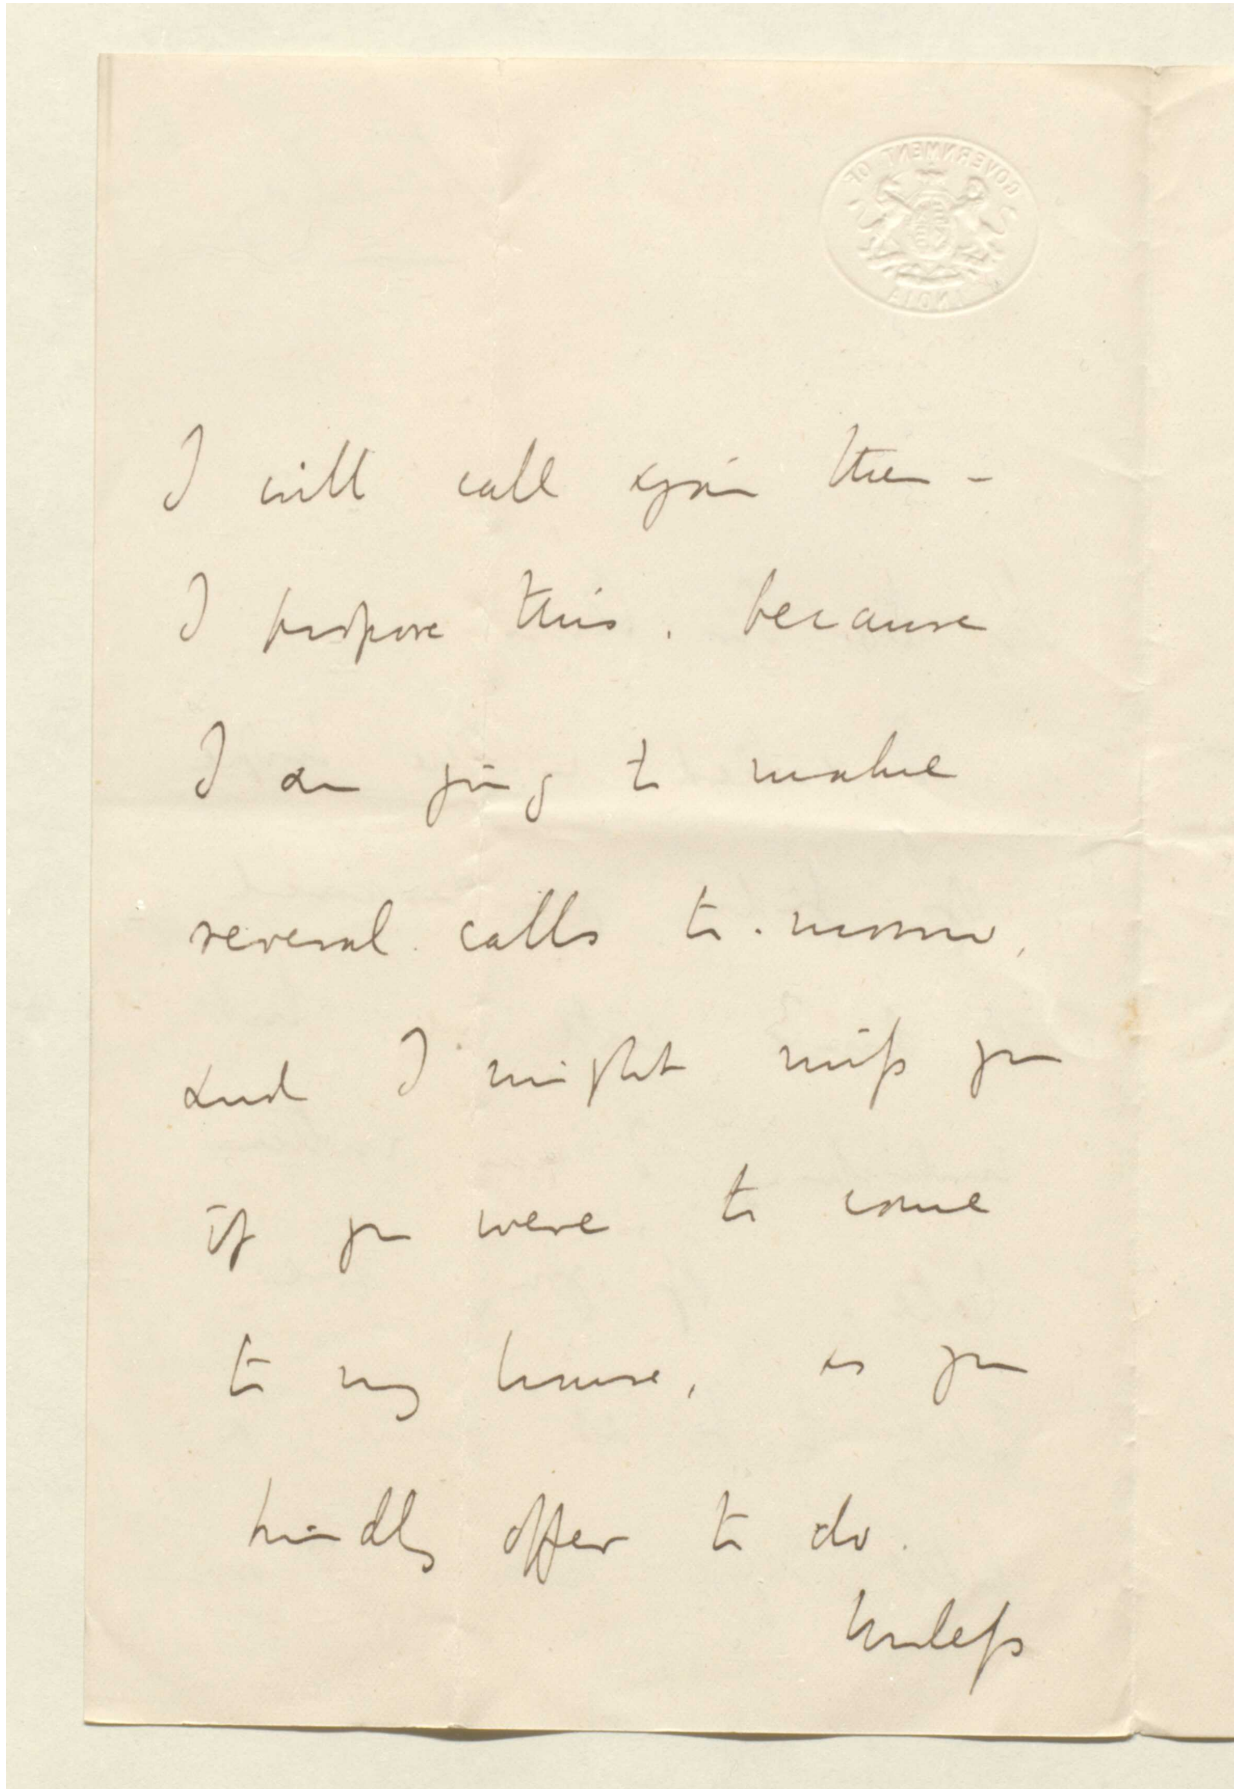 GOVERNMENT OF
INDIA
I will call again then -
I propose this, because
I am going to make
several calls to-morrow,
and I might miss you
if you were to come
to my house, as you
kindly offer to do.
Unless